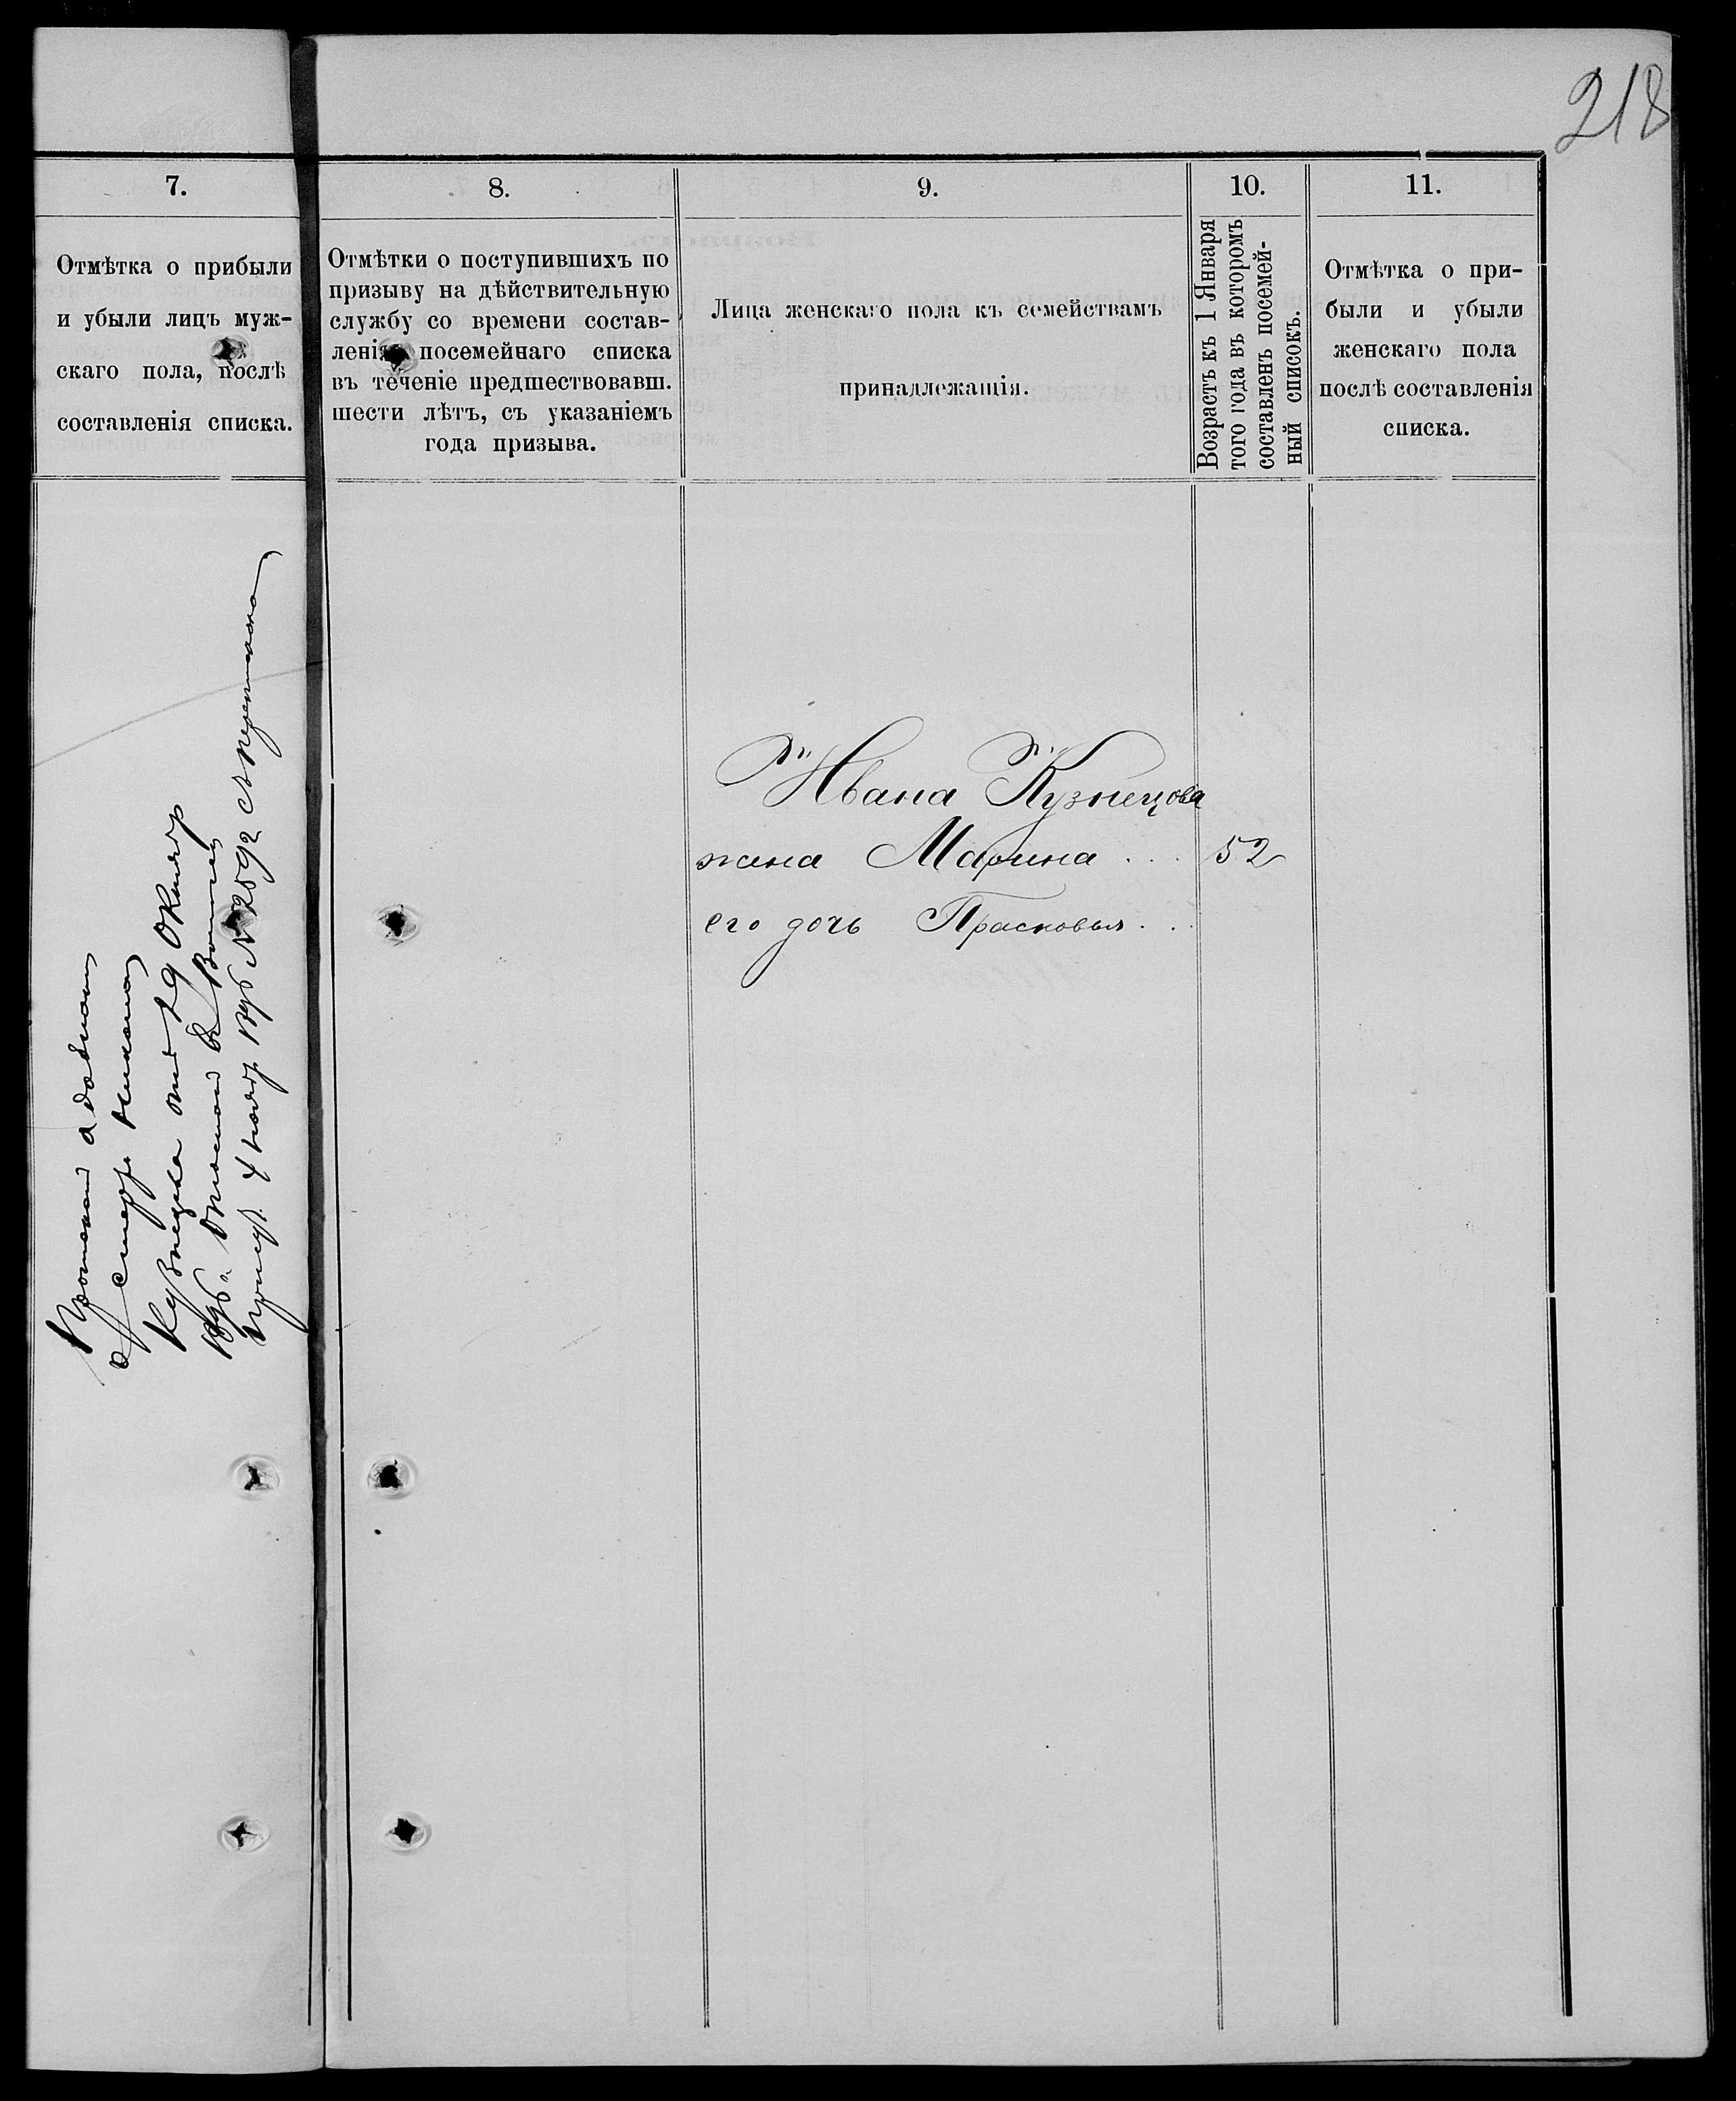 218
7.
Отмѣтка о прибыли
и убыли лицъ муж-
скаго пола, послѣ
составленія списка.
8.
Отмѣтки о поступившихъ по
призыву на дѣйствительную
службу со времени состав-
ленія посемейнаго списка
въ теченіе предшествовавш.
шести лѣтъ, съ указаніемъ
года призыва.
9.
Лица женскаго пола къ семействамъ
принадлежащія.
10.
Возрастъ къ 1 Января
того года въ которомъ
составленъ посемей-
ный списокъ.
11.
Отмѣтка о при-
были и убыли
женскаго пола
послѣ составленія
списка.
о смерт.
Кузнецова от 29 Октяр
189
4 нояб. 189 № 2592 съ
Ивана Кузнецова
жена Марина . . . 52
его дочь Прасковья . . .